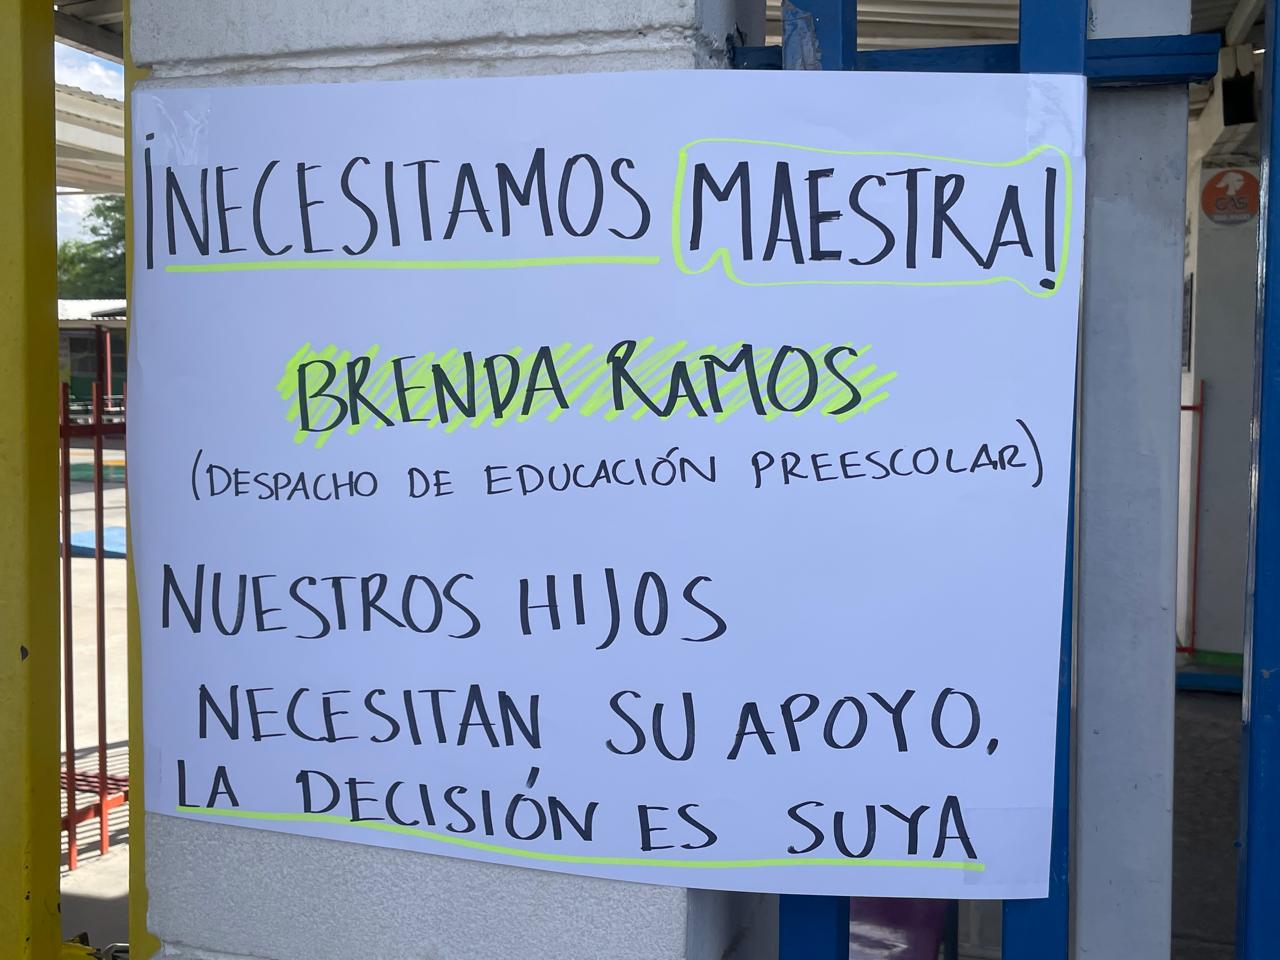 ¡NECESITAMOS MAESTRA!
BRENDA RAMOS
(DESPACHO DE EDUCACIÓN PREESCOLAR)
NUESTROS HIJOS
NECESITAN SU APOYO.
LA DECISIÓN ES SUYA
GAS